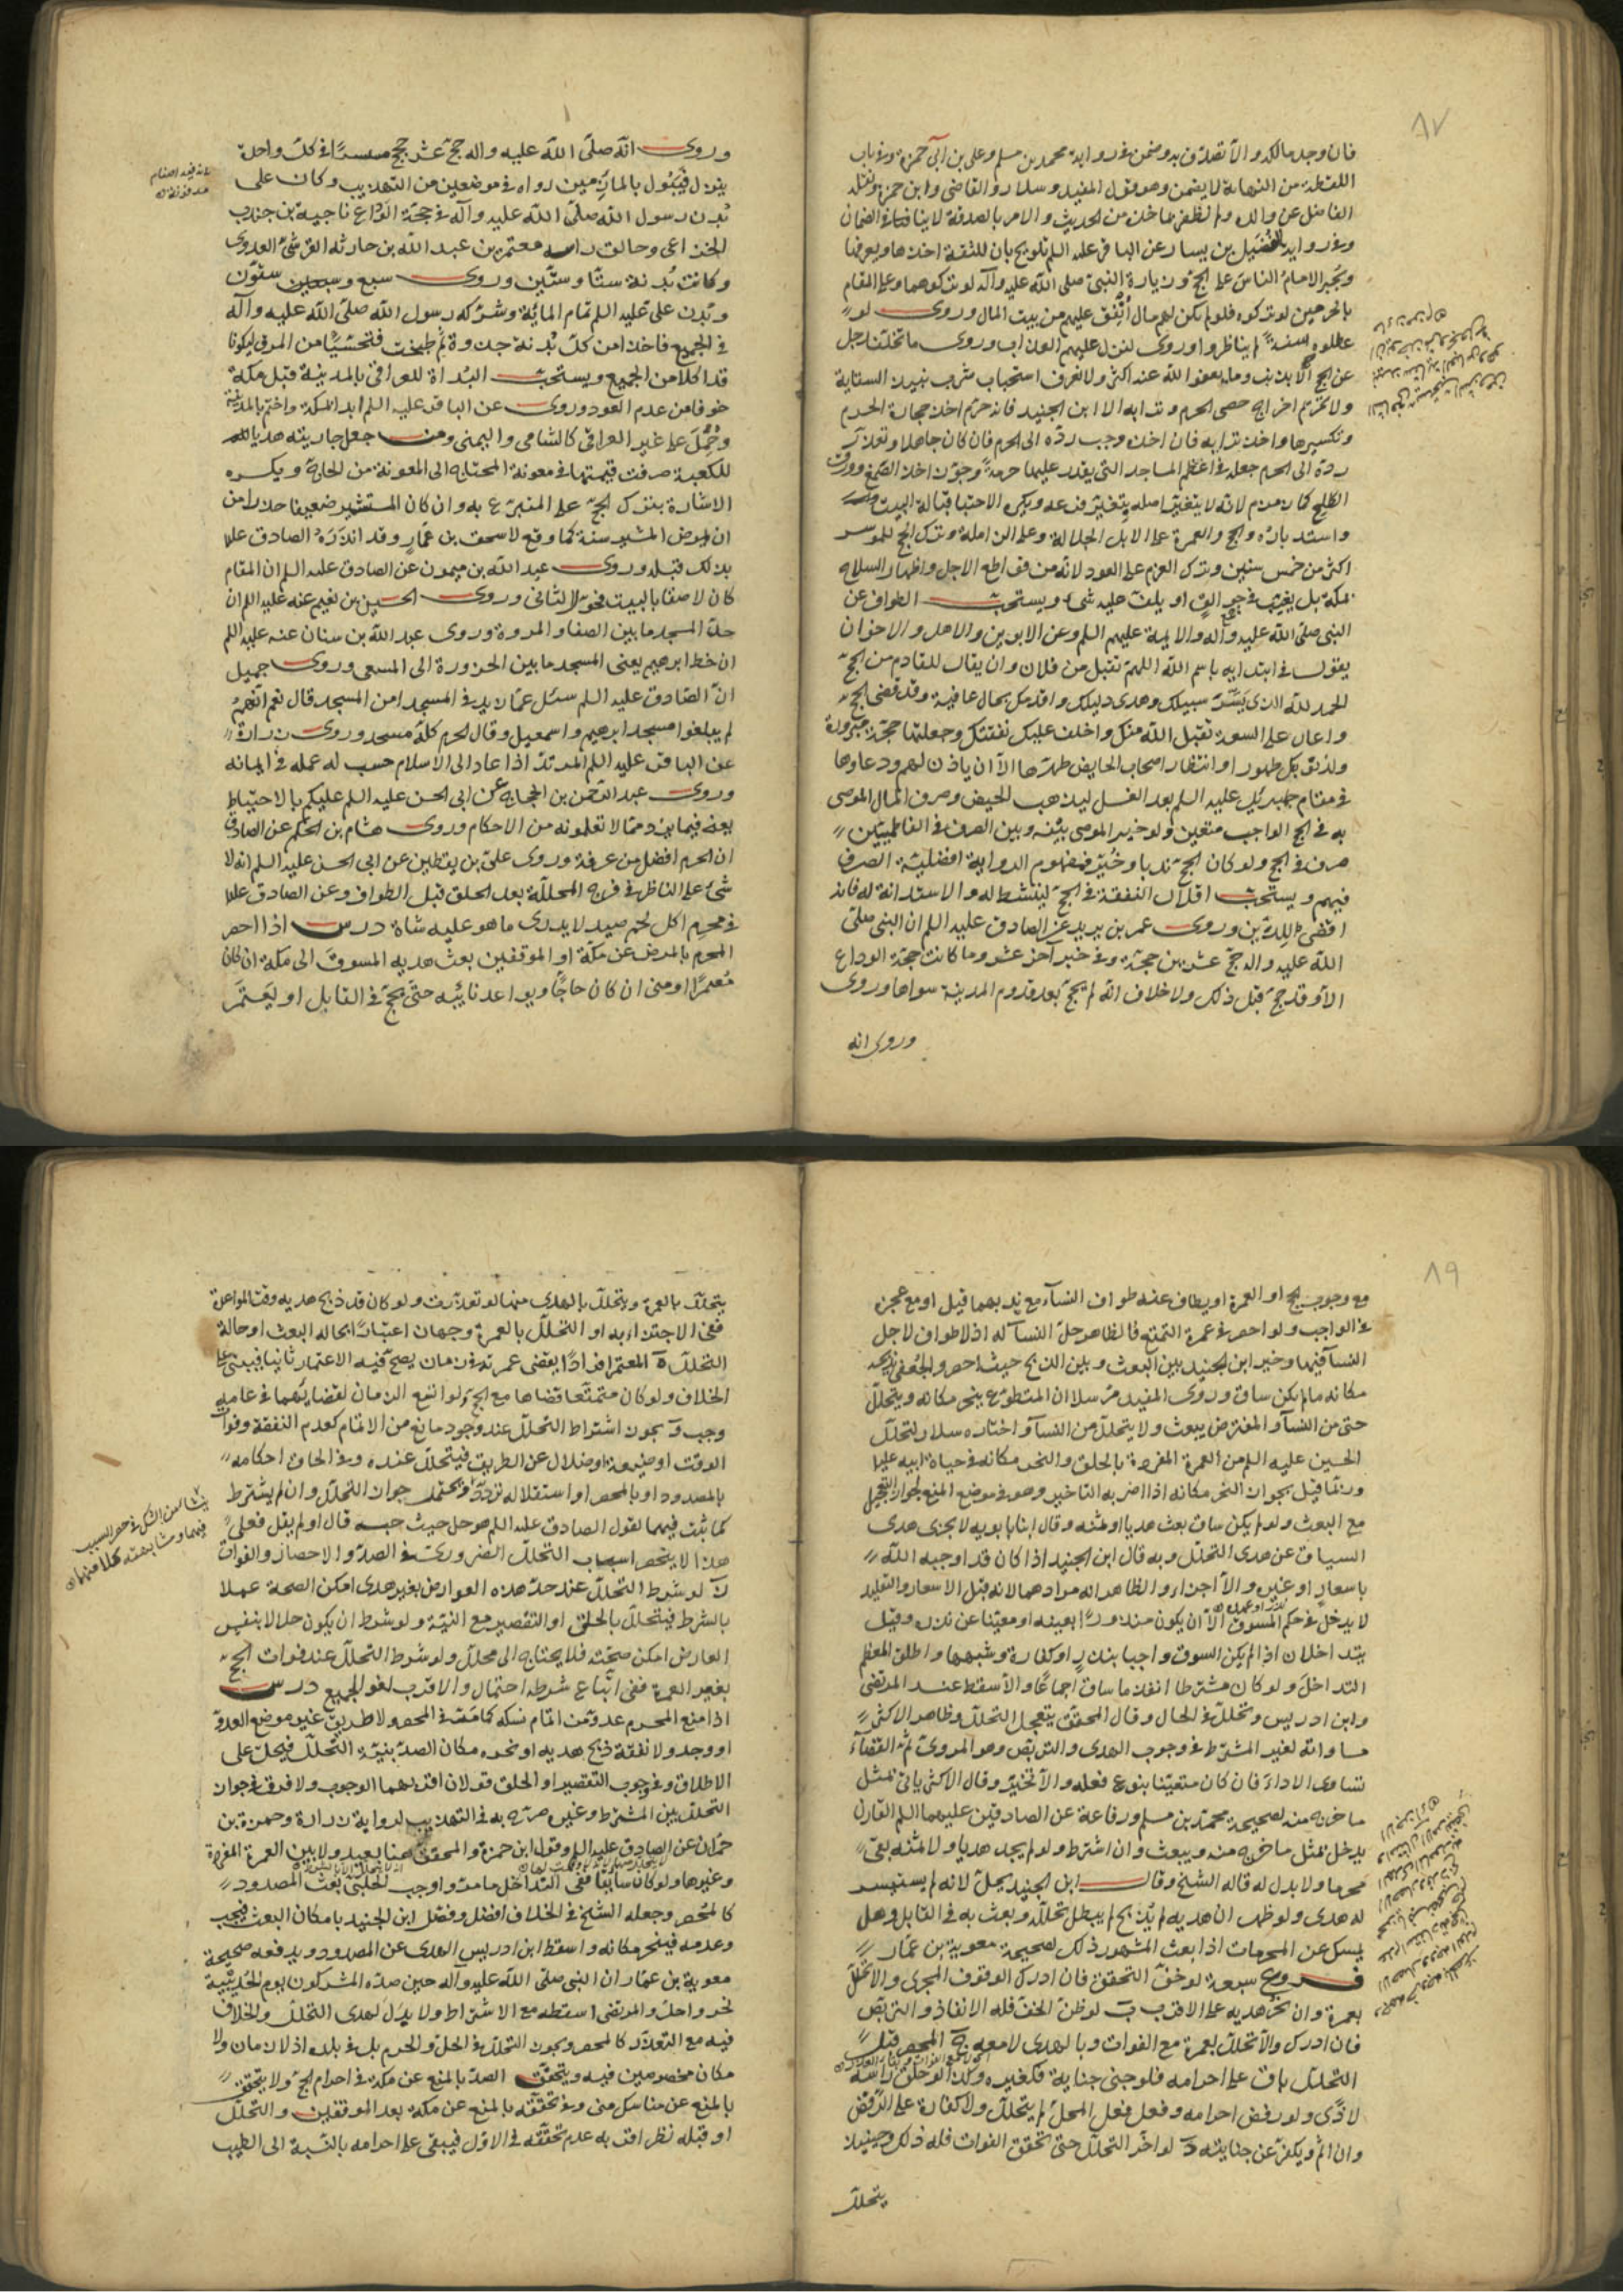 ٨٧
فان وجد مالكه والا تصدق به وضمن في رواية محمد بن مسلم وعلي بن ابي حمزة وفي باب
اللقطة من النهاية لا يضمن وهو قول المفيد وسلار والقاضي وابن حمزة ونقله
الفاضل عن والده ولم نظفر بماخذه من الحديث والامر بالصدقة لا ينافي الضمان
وفي رواية الفضيل بن يسار عن الباقر عليه السلم تلويح بان للثقة اخذها وتعريفها
ويجبر الامام الناس على الحج وزيارة النبي صلى الله عليه وآله لو تركوهما وعلى المقام
بالحرمين لو تركوه فلو لم يكن لهم مال أنفق عليهم من بيت المال وروى لو
عطلوه سنة لم يناظروا وروى لنزل عليهم العذاب وروى ما تخلف رجل
عن الحج الا بذنب وما يعفو الله عنه اكثر ولا نعرف استحباب شرب نبيذ السقاية
ولا يحرم اخراج حصى الحرم وترابه الا ابن الجنيد فانه حرم اخذ حجارة الحرم
وتكسيرها واخذ ترابه فان اخذه وجب رده الى الحرم فان كان جاهلا وتعذر
رده الى الحرم جعله في اعظم المساجد التي يقدر عليها حرمة وجوز اخذ الصمغ وورق
الطلح كماء زمزم لانه لا يتغير اصله بتغير فرعه ويكره الاحتباء قبالة البيت
واستدباره والحج والعمرة على الابل الجلالة وعلى الزاملة وترك الحج للموسر
اكثر من خمس سنين وترك العزم على العود لانه من قواطع الاجل واظهار السلاح
بمكة بل يغيب في جوالق او يلف عليه شئ ويستحب الطواف عن
النبي صلى الله عليه وآله والائمة عليهم السلم وعن الابوين والاهل والاخوان
يقول في ابتدائه باسم الله اللهم تقبل من فلان وان يقال للقادم من الحج
الحمد لله الذي يسر سبيلك وهدى دليلك واقدمك بحال عافية وقد قضى الحج
واعان على السعة تقبل الله منك واخلف عليك نفقتك وجعلها حجة مبرورة
ولذنوبك طهورا وانتظار اصحاب الحايض طهرها الا ان ياذن لهم ودعاؤها
في مقام جبرئيل عليه السلم بعد الغسل ليذهب الحيض وصرف المال الموصى
به في الحج الواجب متعين ولو خير الموصي بينه وبين الصرف في الفاطميين
صرف في الحج ولو كان الحج ندبا وخير فمفهوم الرواية افضلية الصرف
فيهم ويستحب اقلال النفقة في الحج لينشط له والاستدانة له فانه
اقضى للدين وروى عمر بن يزيد عن الصادق عليه السلم ان النبي صلى
الله عليه واله حج عشرين حجة وفي خبر آخر عشر وما كانت حجة الوداع
الا وقد حج قبل ذلك ولا خلاف انه لم يحج بعد قدوم المدينة سواها وروى
وروى انه
وروى انه صلى الله عليه واله حج عشر حجج مستسرا في كل واحدة
ينزل فيبول بالمأزمين رواه في موضعين من التهذيب وكان على
بدن رسول الله صلى الله عليه وآله في حجة الوداع ناجية بن جندب
الخزاعي وحالق راسه معتمر بن عبد الله بن حارثة القرشي العدوي
وكانت بدنه ستا وستين وروى سبع وستون
وبدن علي عليه السلم تمام المائة وشركه رسول الله صلى الله عليه وآله
في الجميع فاخذا من كل بدنة جذوة ثم طبخت فتحسيا من المرق ليكونا
قد اكلا من الجميع ويستحب البدأة للعراقي بالمدينة قبل مكة
خوفا من عدم العود وروى عن الباقر عليه السلم ابدا بمكة واختم بالمدينة
وحمل على غير العراقي كالشامي واليمني ومن جعل جاريته هديا
للكعبة صرفت قيمتها في معونة المحتاج الى المعونة من الحاج ويكره
الاشارة بترك الحج على المتبرع به وان كان المستشير ضعيفا حذرا من
ان يمرض المشير سنة كما وقع لاسحق بن عمار وقد انذره الصادق عليه
بذلك قبله وروى عبد الله بن ميمون عن الصادق عليه السلم ان المقام
كان لاصقا بالبيت فحوله الثاني وروى الحسين بن نعيم عنه عليه السلم ان
حد المسجد ما بين الصفا والمروة وروى عبد الله بن سنان عنه عليه السلم
ان خط ابرهيم يعني المسجد ما بين الحزورة الى المسعى وروى جميل
ان الصادق عليه السلم سئل عما زيد في المسجد امن المسجد قال نعم انهم
لم يبلغوا مسجد ابرهيم واسمعيل وقال الحرم كله مسجد وروى زرارة
عن الباقر عليه السلم المرتد اذا عاد الى الاسلام حسب له عمله في ايمانه
وروى عبد الرحمن بن الحجاج عن ابي الحسن عليه السلم عليكم بالاحتياط
يعني فيما يرد مما لا تعلمونه من الاحكام وروى هشام بن الحكم عن الصادق
ان الحرم افضل من عرفة وروى علي بن يقطين عن ابي الحسن عليه السلم انه لا
شئ على الناظر في فرج المحللة بعد الحلق قبل الطواف وعن الصادق عليه
في محرم اكل لحم صيد لا يدري ما هو عليه شاة درس اذا احصر
المحرم بالمرض عن مكة او الموقفين بعث هديه المسوق الى مكة ان كان
معتمرا او منى ان كان حاجا ويواعد نائبه حتى يحج في القابل او يعتمر
٨٩
مع وجوب الحج او العمرة او يطاف عنه طواف النساء مع ندبهما قيل او مع عجزه
في الواجب ولو احصر في عمرة التمتع فالظاهر حل النسآ له اذ لا طواف لاجل
النسآ فيها وخير ابن الجنيد بين البعث وبين الذبح حيث احصر والجعفي يذبحه
مكانه ما لم يكن ساق وروى المفيد مرسلا ان المتطوع ينحر مكانه ويتحلل
حتى من النسآ والمفترض يبعث ولا يتحلل من النسآ واختاره سلار لتحلل
الحسين عليه السلم من العمرة المفردة بالحلق والنحر مكانه في حياة ابيه عليهما
وربما قيل بجواز النحر مكانه اذا اضر به التاخير وهو في موضع المنع لجواز التعجيل
مع البعث ولو لم يكن ساق بعث هديا او ثمنه وقال ابنا بابويه لا يجزي هدي
السياق عن هدي التحلل وبه قال ابن الجنيد اذا كان قد اوجبه الله
باشعار او غيره والا اجزاء والظاهر انه مرادهما لانه قبل الاشعار والتقليد
لا يدخل في حكم المسوق الا ان يكون منذورا بعينه او معينا عن نذره وقيل
يتداخلان اذا لم يكن السوق واجبا بنذر او كفارة وشبهها واطلق المعظم
التداخل ولو كان مشترطا انفذ ما ساق اجماعا والا سقط عند المرتضى
وابن ادريس وتحلل في الحال وقال المحقق يتعجل التحلل وظاهر الاكثر
مساواته لغير المشترط في وجوب الهدي والتربص وهو المروي ثم القضاء
تساوي الاداء فان كان متعينا بنوع فعله والا تخير وقال الاكثر ياتي بمثل
ما خرج منه لصحيحة محمد بن مسلم ورفاعة عن الصادقين عليهما السلم القارن
يدخل بمثل ما خرج منه ويبعث وان اشترط ولو لم يجد هديا ولا ثمنه بقي
محرما ولا بدل له قاله الشيخ وقال ابن الجنيد يحل لانه لم يستيسر
له هدي ولو ظهر ان هديه لم يذبح لم يبطل تحلله وبعث به في القابل وهل
يمسك عن المحرمات اذا بعث المشهور ذلك لصحيحة معوية بن عمار
فروع سبعة لو خف التحقق فان ادرك الوقوف المجزي والا تحلل
بعمرة وان نحر هديه على الاقرب ب لو ظن الخف فله الانفاذ والتربص
فان ادرك والا تحلل بعمرة مع الفوات وبالهدي لا معه ج المحصر قبل
التحلل باق على احرامه فلو جنى جناية فكغيره وكذا لو حلق راسه
لاذى ولو رفض احرامه وفعل فعل المحل لم يتحلل ولا كفارة على الرفض
وان اثم ويكفر عن جنايته د لو اخر التحلل حتى تحقق الفوات فله ذلك وحينئذ
يتحلل
يتحلل بالعمرة ويتحلل بالهدي منها لو تعذرت ولو كان قد ذبح هديه وقت المواعدة
ففي الاجتزاء به او التحلل بالعمرة وجهان اعتبارا بحالة البعث او حالة
التحلل ه المعتمر افرادا يقضي عمرته في زمان يصح فيه الاعتمار ثانيا فيبنى على
الخلاف ولو كان متمتعا قضاها مع الحج ولو اتسع الزمان لقضائهما في عامه
وجب و يجوز اشتراط التحلل عند وجود مانع من الاتمام كعدم النفقة وفوات
الوقت او ضيقه او ضلال عن الطريق فيتحلل عنده وفي الحاق احكامه
بالمصدود او بالمحصر او استقلاله تردد ويحتمل جواز التحلل وان لم يشترط
كما ثبت فيهما لقول الصادق عليه السلم هو حل حيث حبسه قال او لم يقل فعلى
هذا لا ينحصر اسباب التحلل الضرورية في الصد والاحصار والفوات
ز لو شرط التحلل عند حد هذه العوارض بغير هدي امكن الصحة عملا
بالشرط فيتحلل بالحلق او التقصير مع النية ولو شرط ان يكون حلالا بنفس
العارض امكن صحته فلا يحتاج الى محلل ولو شرط التحلل عند فوات الحج
بغير العمرة ففي اتباع شرطه احتمال والاقرب لغو الجميع درس
اذا منع المحرم عدو من اتمام نسكه كما مر في المحصر ولا طريق غير موضع العدو
او وجد ولا نفقة ذبح هديه او نحره مكان الصد بنية التحلل فيحل على
الاطلاق وفي وجوب التقصير او الحلق قولان اقربهما الوجوب ولا فرق في جواز
التحلل بين المشترط وغيره صرح به في التهذيب لرواية زرارة وحمزة بن
حمران عن الصادق عليه السلم وقول ابن حمزة والمحقق هنا بعيد ولا بين العمرة المفردة
وغيرها ولو كان سائقا ففي التداخل ما مر واوجب الحلبي بعث المصدود
كالمحصر وجعله الشيخ في الخلاف افضل وفصل ابن الجنيد بامكان البعث فيجب
وعدمه فينحر مكانه واسقط ابن ادريس الهدي عن المصدود ويدفعه صحيحة
معوية بن عمار ان النبي صلى الله عليه وآله حين صده المشركون يوم الحديبية
نحر واحل والمرتضى اسقطه مع الاشتراط ولا بدل لهدي التحلل والخلاف
فيه مع التعذر كالمحصر ويجوز التحلل في الحل والحرم بل في بلده اذ لا زمان ولا
مكان مخصوصين فيه ويتحقق الصد بالمنع عن مكة في احرام الحج ولا يتحقق
بالمنع عن مناسك منى وفي تحققه بالمنع عن مكة بعد الموقفين والتحلل
او قبله نظر اقربه عدم تحققه في الاول فيبقى على احرامه بالنسبة الى الطيب